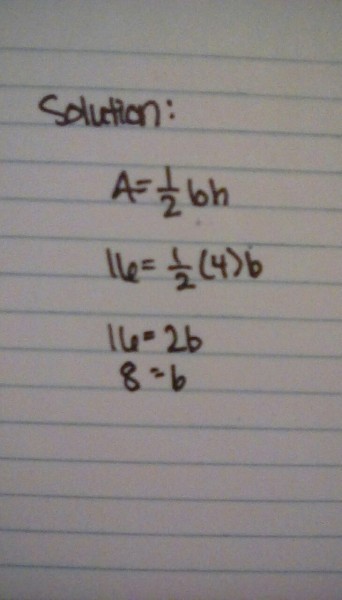 Solution:
A=½bh
16=½(4)b
16=2b
8=b